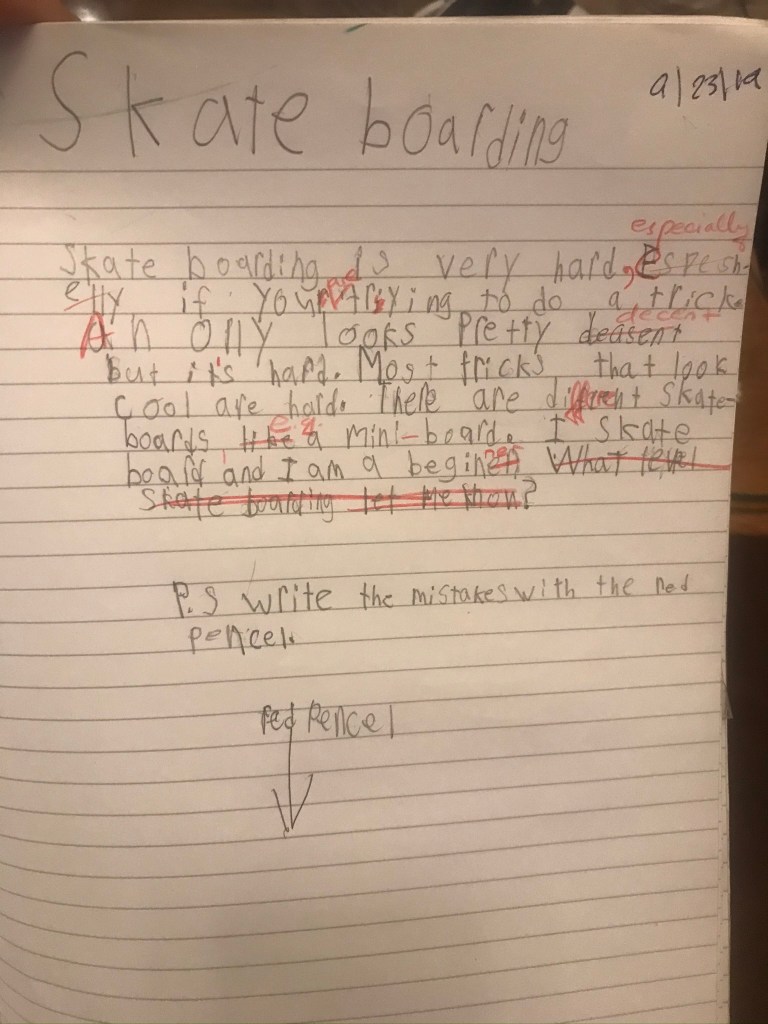 Skate boarding
9/23/19
especially
Skate boarding is very hard, Espesh-
elly if your trying to do a trick.
decent
An olly looks Pretty deasent
but it's hard. Most tricks that look
cool are hard. There are different skate-
e.g.
boards like a mini-board. I skate
board and I am a beginner. What level
Skate boarding let me know?
P.S write the mistakes with the red
pencel.
red Pencel